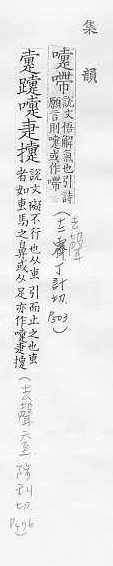 集韻
嚏嚔 說文悟解氣也引詩願言則嚏或作嚔(去聲十二霽丁計切P503)
疐躓嚏疌㨖 說文礙不行也从叀引而止之也叀者如叀馬之鼻或从足亦作嚏疌㨖(去聲六至陟利切P476)